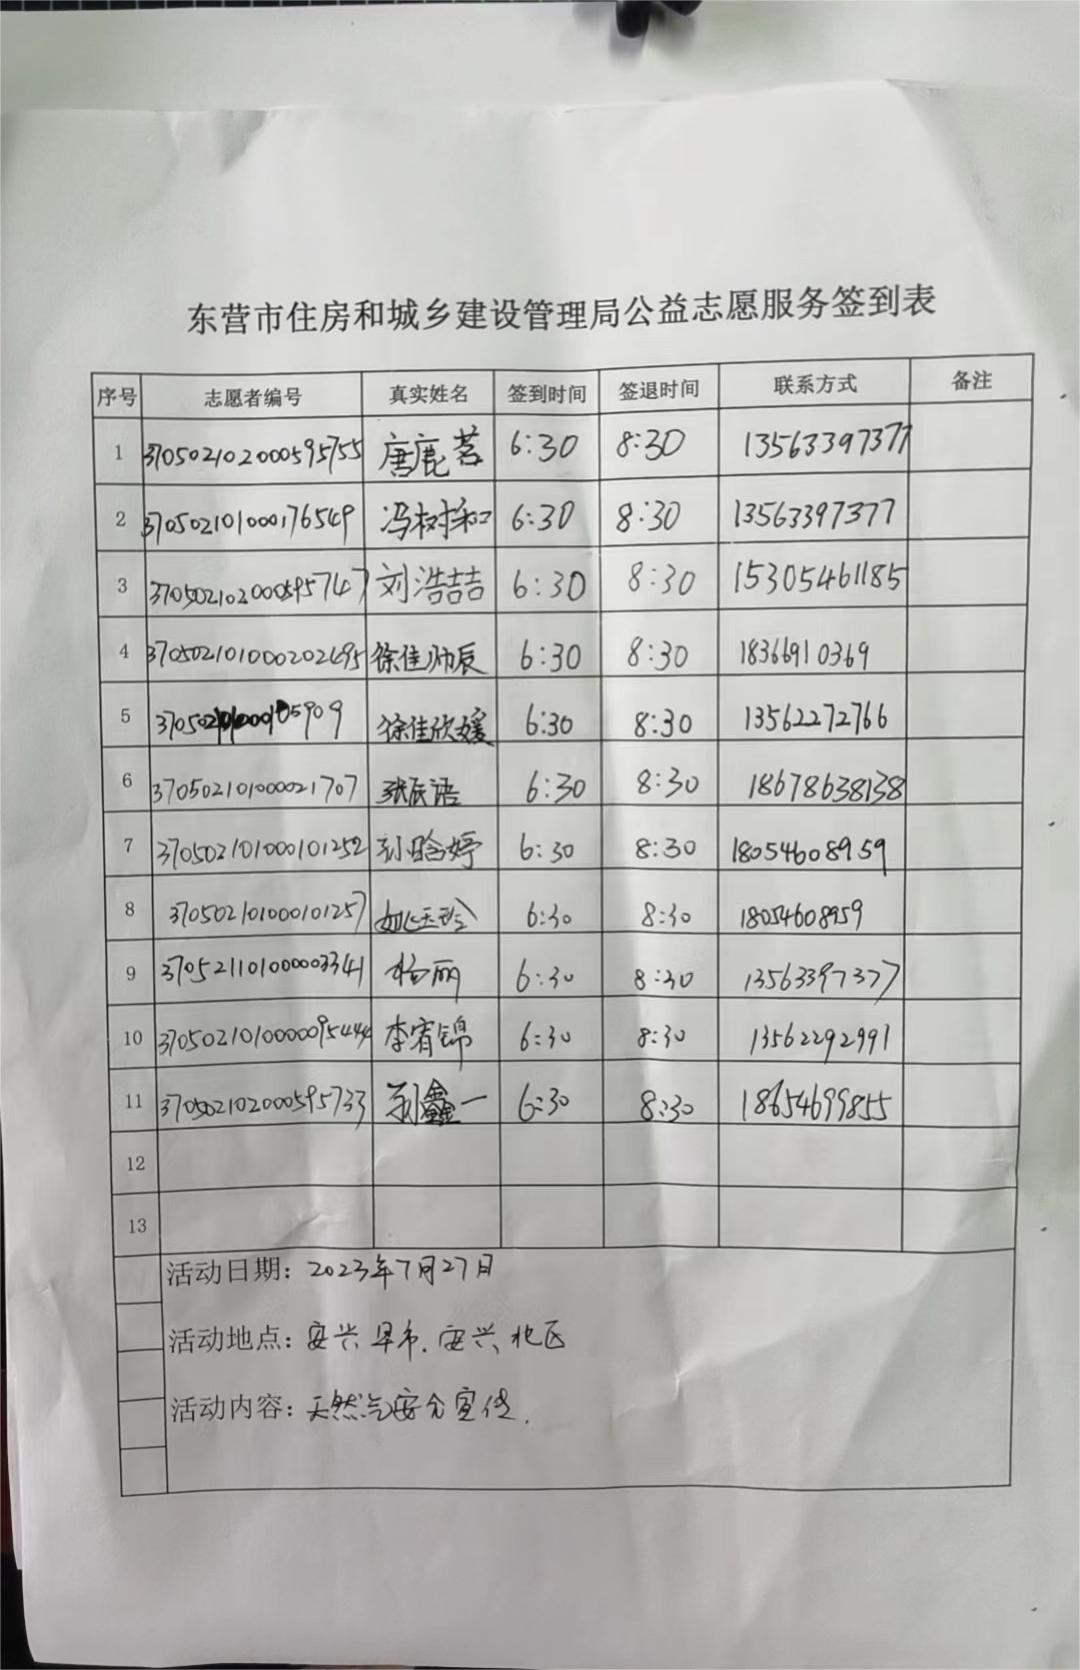 东营市住房和城乡建设管理局公益志愿服务签到表
序号 志愿者编号 真实姓名 签到时间 签退时间 联系方式 备注
1 370502102000595755 唐鹿茗 6:30 8:30 13563397377
2 370502101000176549 冯树和 6:30 8:30 13563397377
3 370502102000595747 刘浩喆 6:30 8:30 15305461185
4 370502101000202495 徐佳帅辰 6:30 8:30 18366910369
5 370502101000105909 徐佳欣媛 6:30 8:30 13562272766
6 370502101000021707 张辰语 6:30 8:30 18678638138
7 370502101000101252 刘晗婷 6:30 8:30 18054608959
8 370502101000101257 6:30 8:30 18054608959
9 370521101000003341 杨丽 6:30 8:30 13563397377
10 370502101000095444 李宥锦 6:30 8:30 13562292991
11 370502102000595733 刘鑫一 6:30 8:30 18654699855
12
13
活动日期：2023年7月27日
活动地点：安兴早市.安兴北区
活动内容：天然气安全宣传.